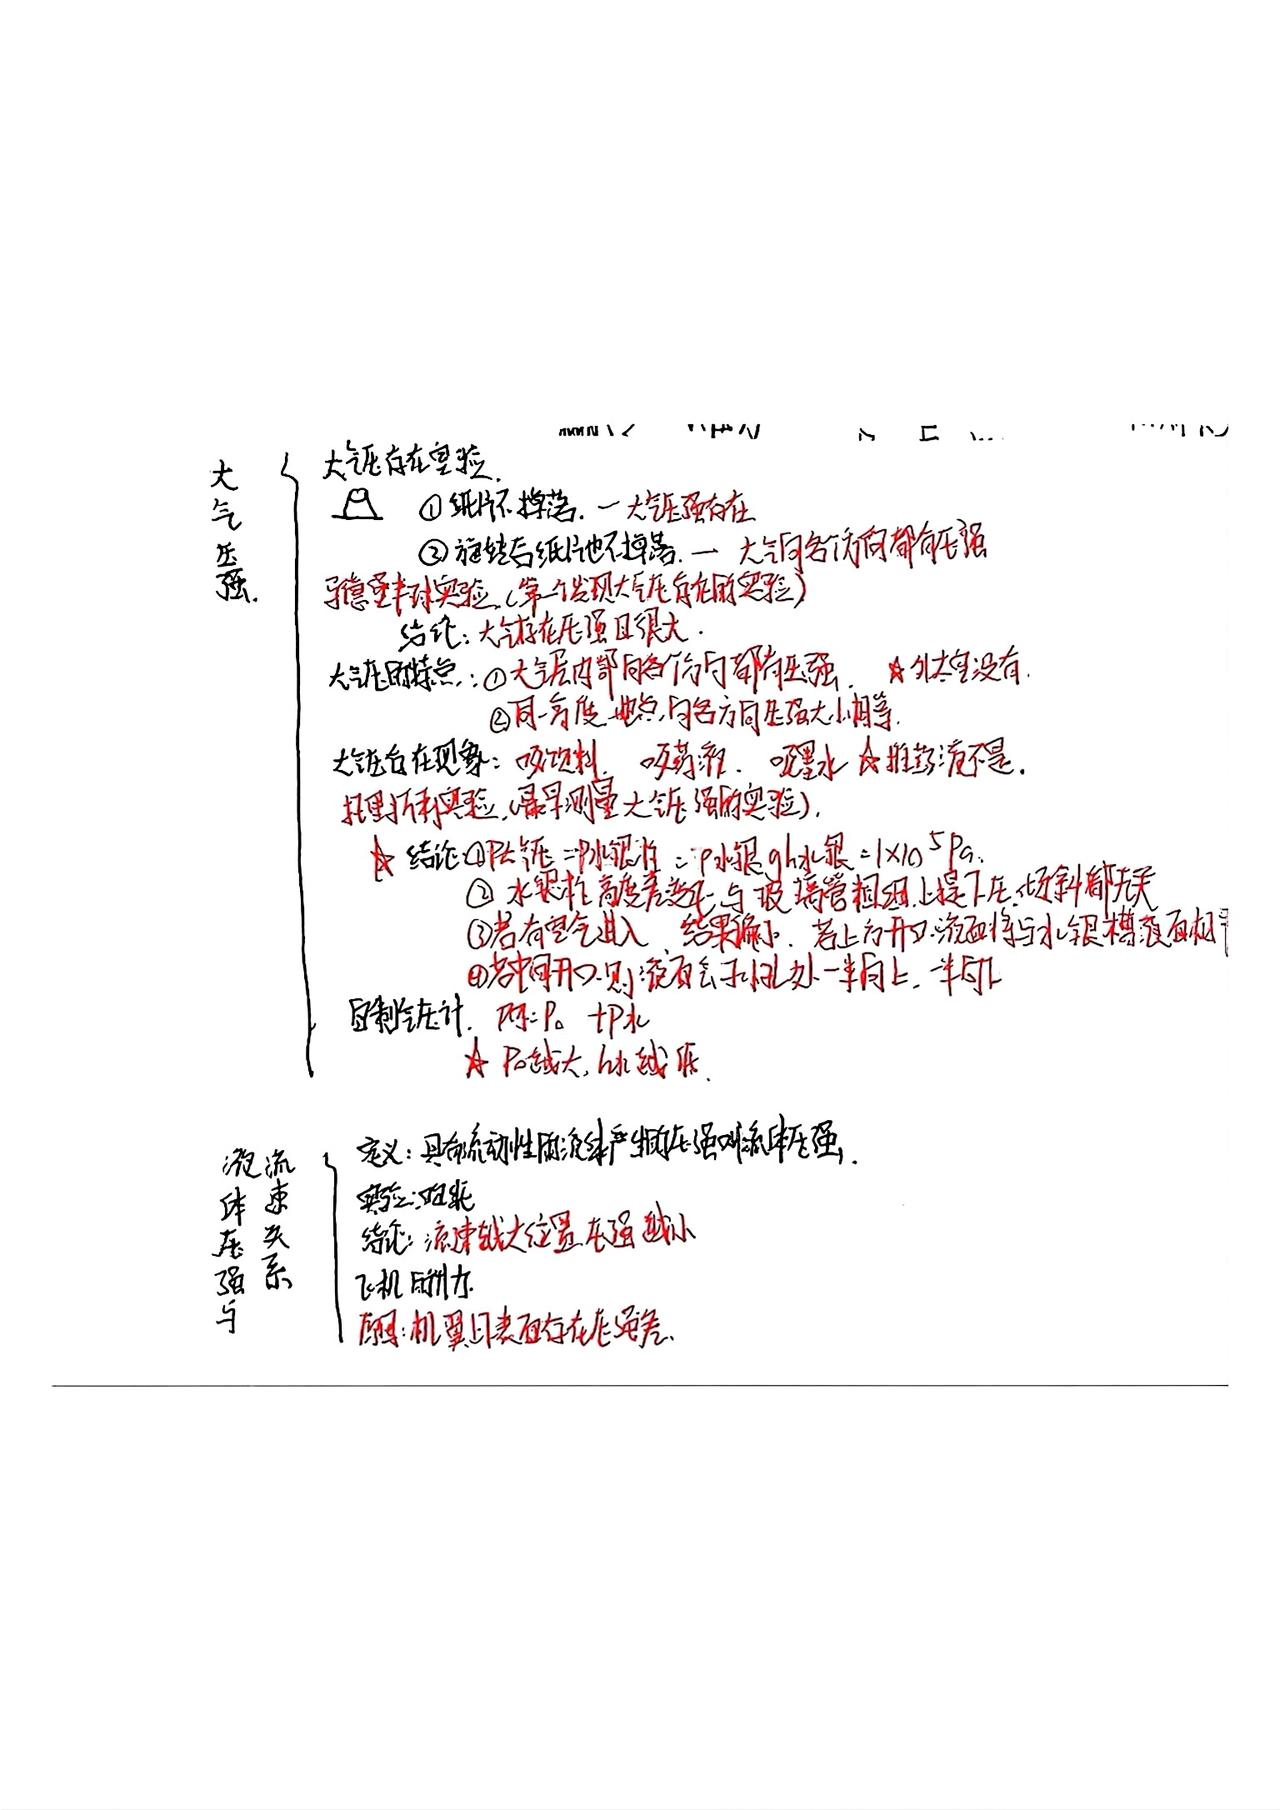 大气压强.
大气压存在实验.
①纸片不掉落. 一 大气压强存在
②旋转后纸片也不掉落. 一 大气向各个方向都有压强
马德堡半球实验.(第一个发现大气压存在的实验)
结论:大气存在压强且很大.
大气压的特点.:①大气层内部向各个方向都有压强. ☆外太空没有.
②同一高度一地点,向各方向压强大小相等.
大气压存在现象: 吸饮料. 吸药液. 吸墨水 ☆推药液不是.
托里拆利实验.(最早测量大气压强的实验).
☆ 结论:①P大气压=P水银柱=ρ水银gh水银=1×10⁵Pa.
② 水银柱高度差 与玻璃管粗细.上提下压.倾斜都无关
③若有空气进入 结果偏小. 若上方开口.液面将与水银槽液面相平
④若中间开口.则液面会 孔处一半向上. 一半向下
自制气压计. =P₀ +P水
☆ P₀越大,h水越低.
液体压强与流速关系
定义:具有流动性的液体产生的压强叫流体压强.
实验:
结论:流速越大位置压强越小
飞机的升力.
原因:机翼上下表面存在压强差.